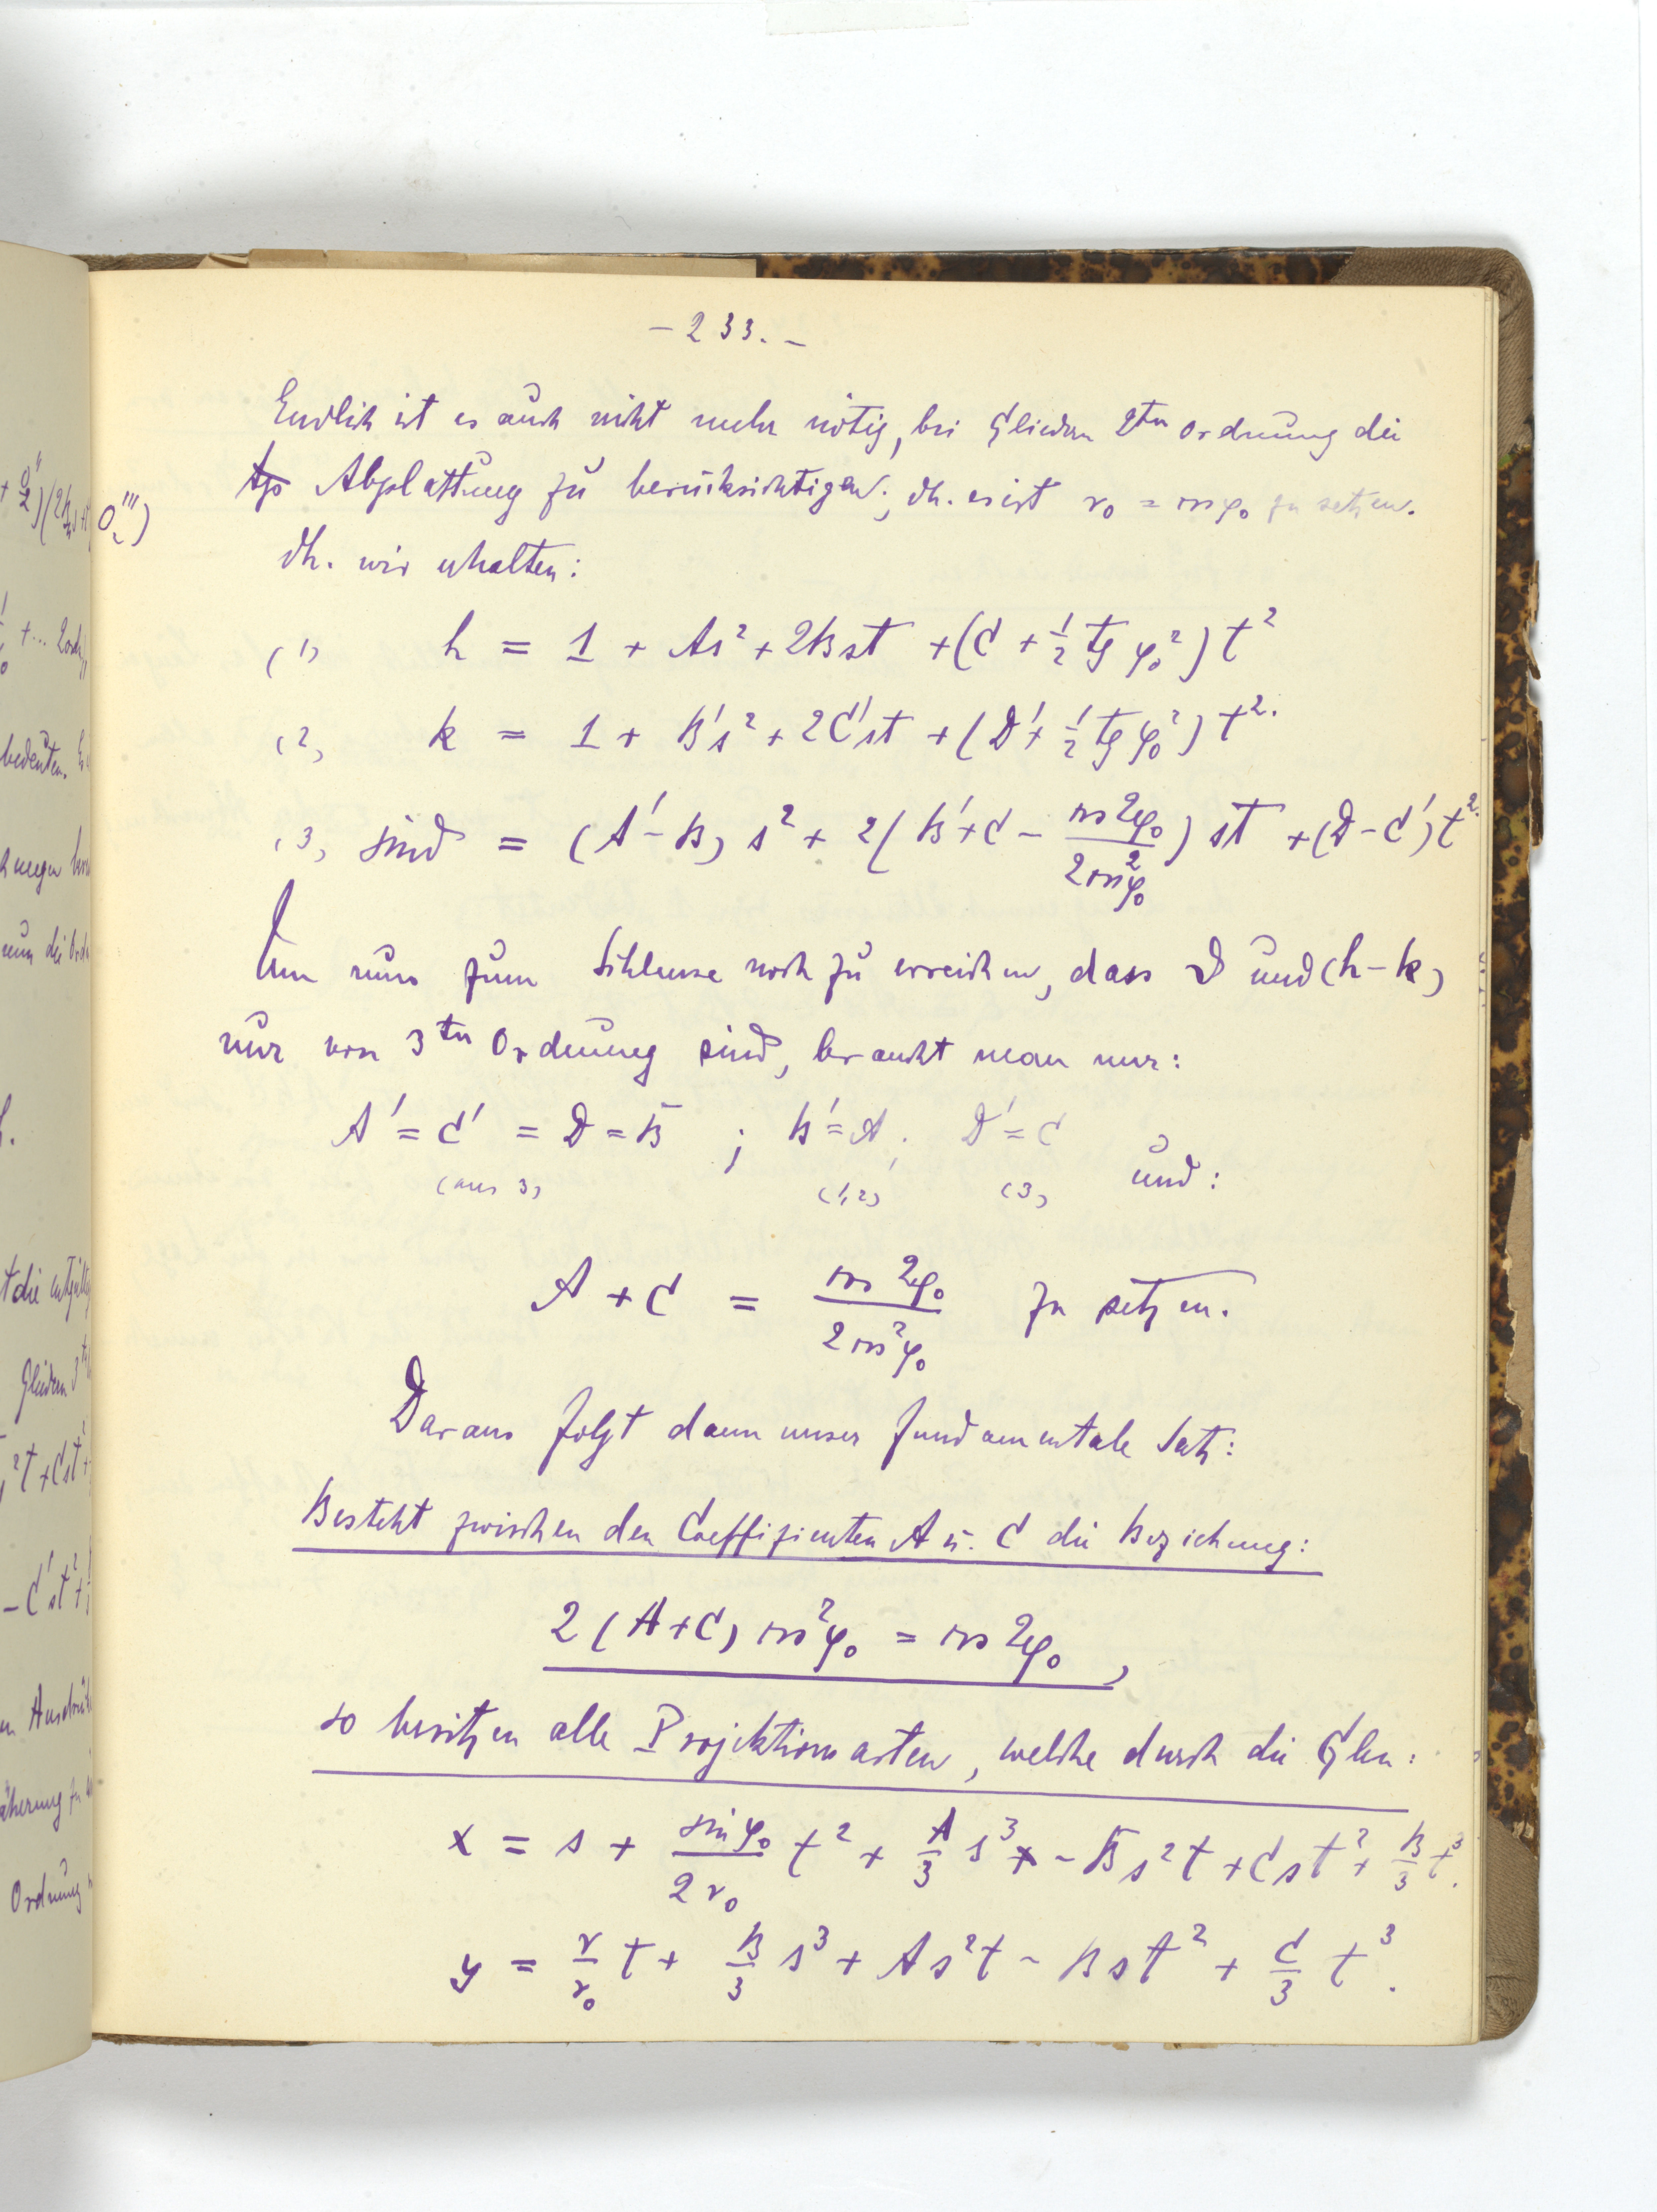 - 233. -
Endlich ist es auch nicht mehr nötig, bei Gliedern 2ten Ordnung die
Abplattung zu berücksichtigen; dh. es ist r₀ = cos φ₀ zu setzen.
dh. wir erhalten:
(1) h = 1 + As² + 2Bst + (C + 1/2 tg φ₀²) t²
(2) k = 1 + B's² + 2C'st + (D' + 1/2 tg φ₀²) t².
(3) sin ϑ = (A' - B) s² + 2(B' + C - cos 2φ₀ / 2cos²φ₀) st + (D - C') t².
Um nun zum Schlusse noch zu erreichen, dass ϑ und (h - k)
nur von 3ten Ordnung sind, braucht man nur:
A' = C' = D = B ; B' = A ; D' = C
(aus 3) (1,2) (3) und:
A + C = cos 2φ₀ / 2cos²φ₀ zu setzen.
Daraus folgt dann unser fundamentale Satz:
Besteht zwischen den Coeffizienten A u. C die Beziehung:
2(A + C) cos²φ₀ = cos 2φ₀,
so besitzen alle Projektionsarten, welche durch die Glen:
x = s + sin φ₀ / 2r₀ t² + A/3 s³ - Bs²t + Cst² + B/3 t³.
y = r/r₀ t + B/3 s³ + As²t - Bst² + C/3 t³.